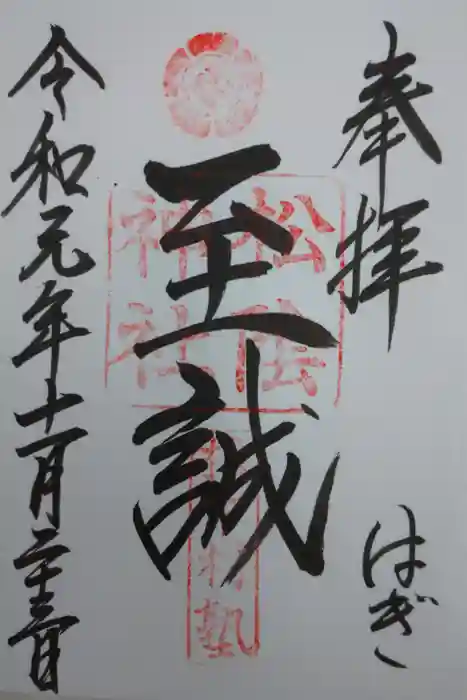 奉拝
はぎ
至誠
松陰
神社
松下村塾
令和元年十一月二十三日